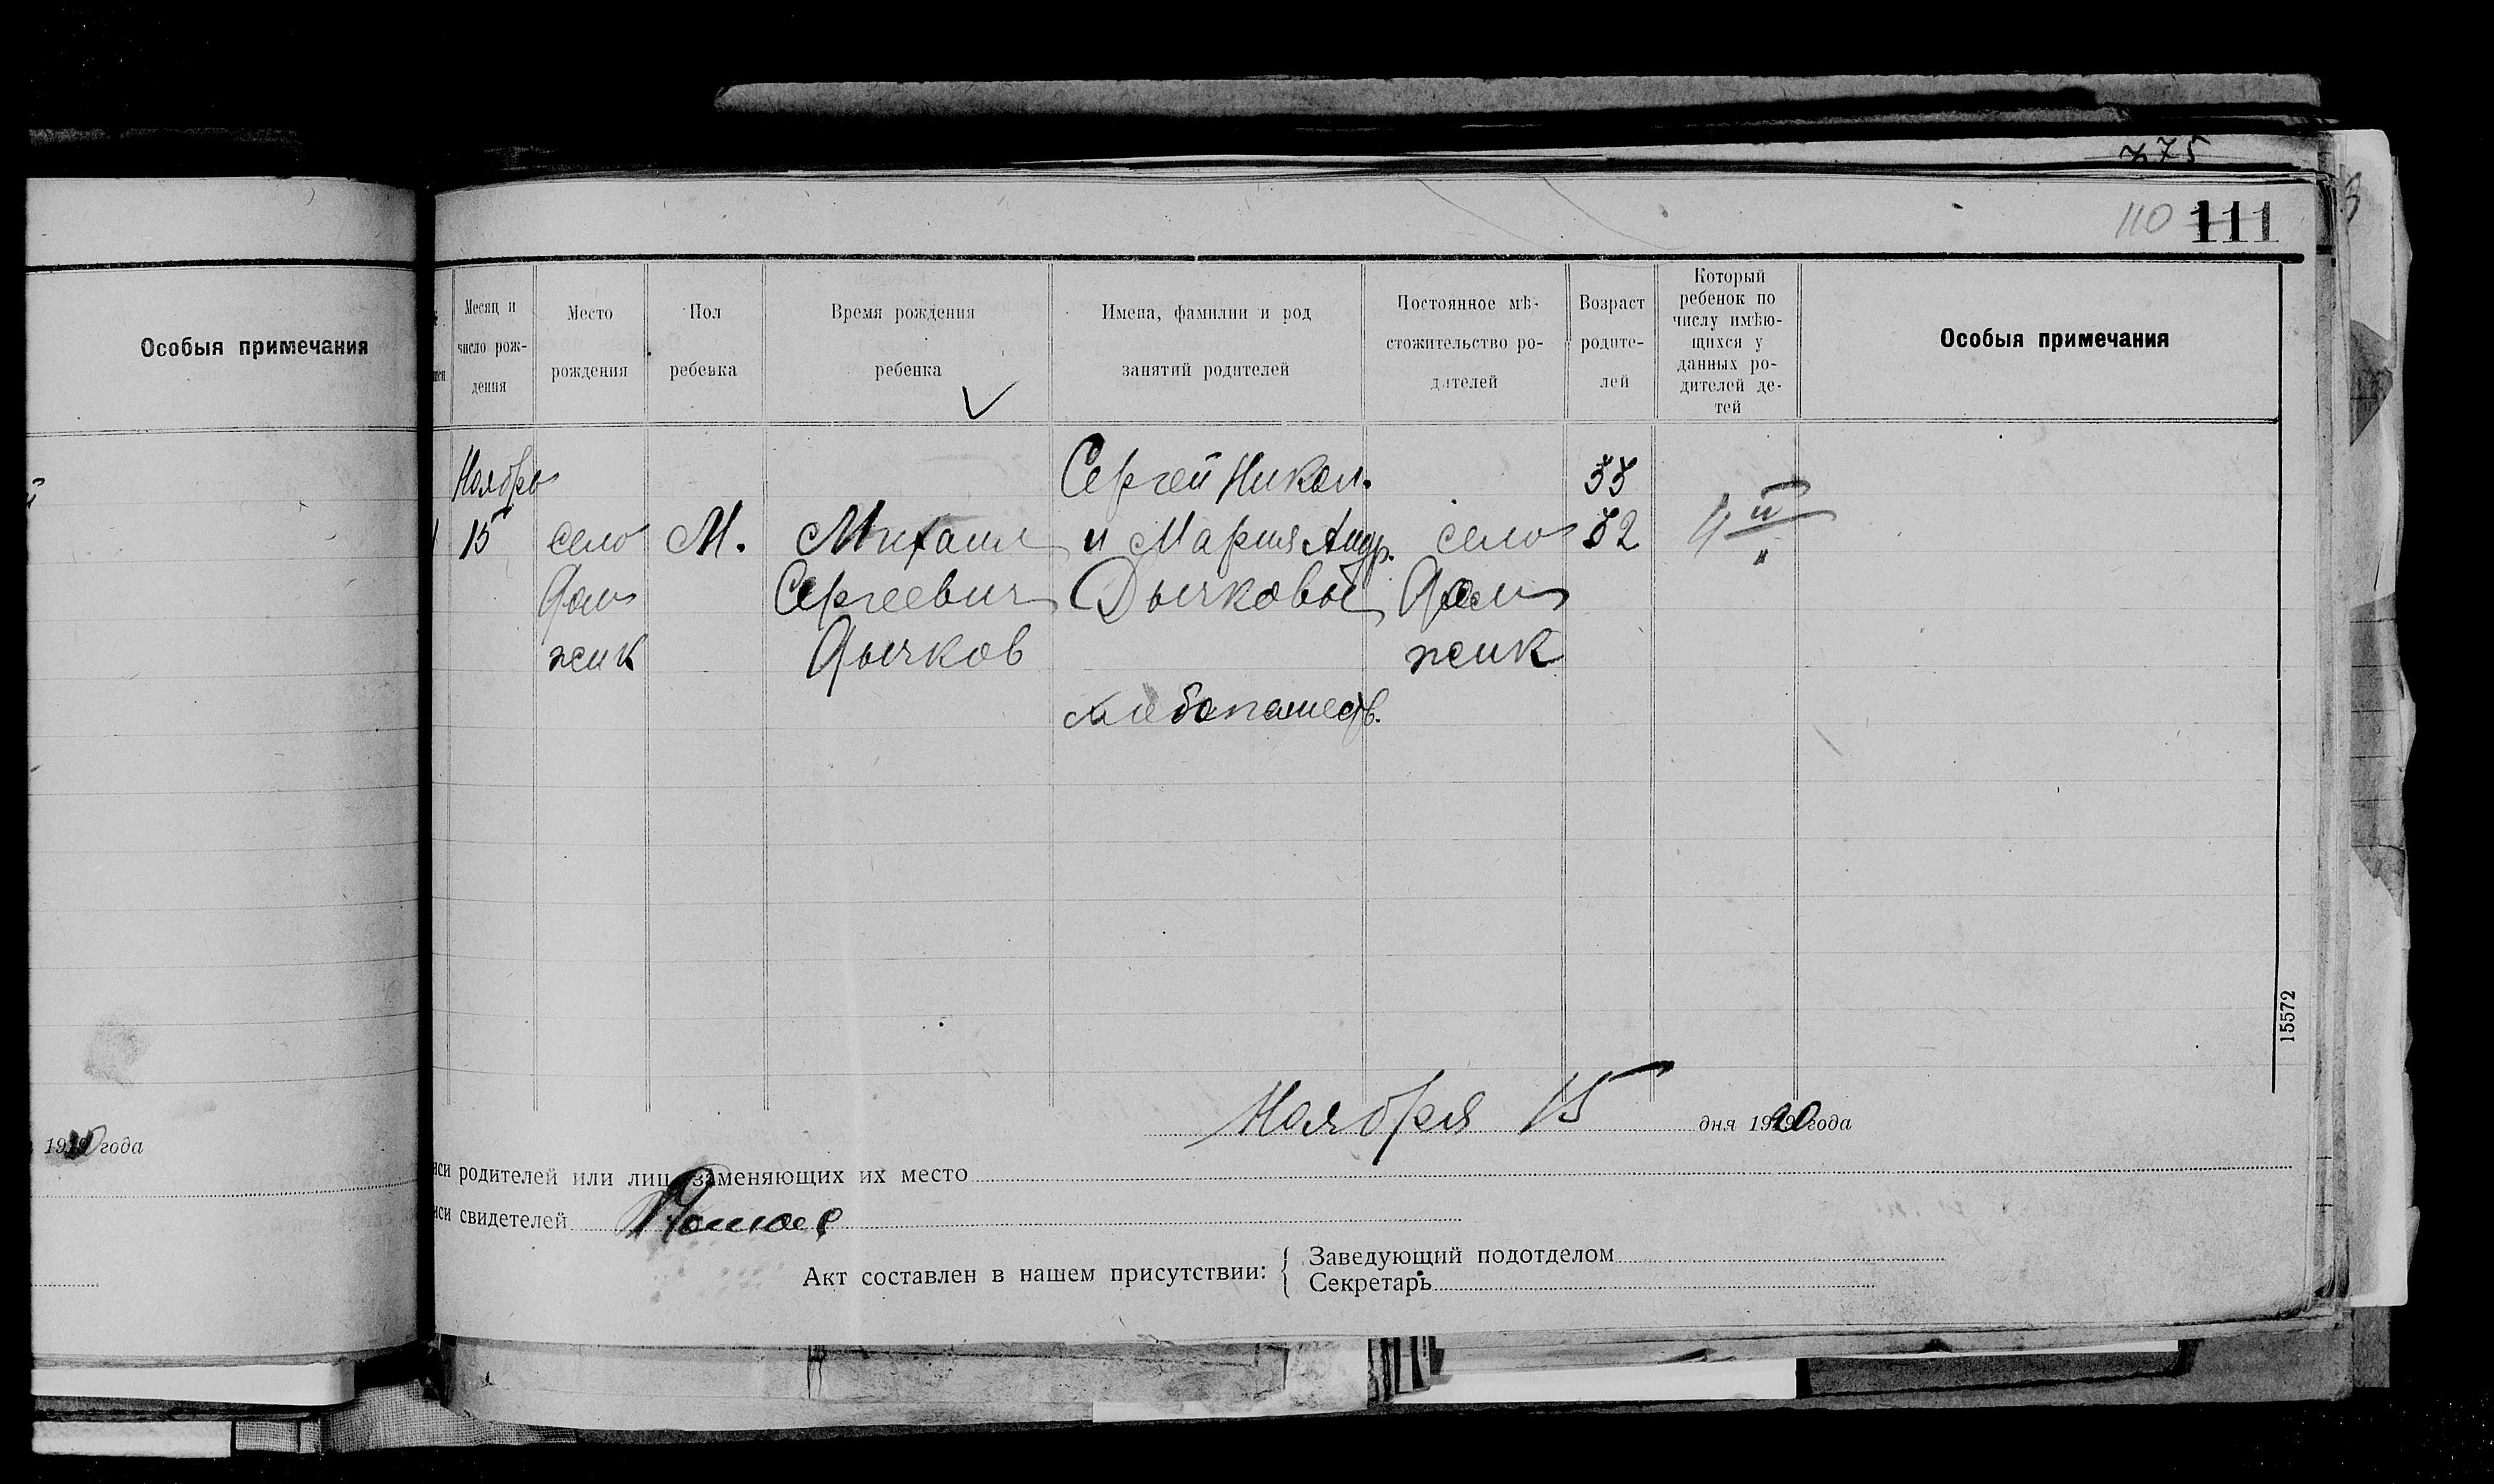 375
110 111
Особыя примечания
Месяц и число рождения
Место рождения
Пол ребенка
Время рождения ребенка
Имена, фамилии и род занятий родителей
Постоянное мѣстожительство родителей
Возраст родителей
Который ребенок по числу имѣющихся у данных родителей детей
Особыя примечания
Ноябрь
Сергей Никол.
33
15
село
М.
Михаил
и Мария Андр.
село
32
4й
Сергеевич
Дычковы
жик
Дычков
жик
хлебопашедв.
15572
Ноября 15 дня 1920 года
19 года
родителей или лиц заменяющих их место
свидетелей
Акт составлен в нашем присутствии:
Заведующий подотделом
Секретарь